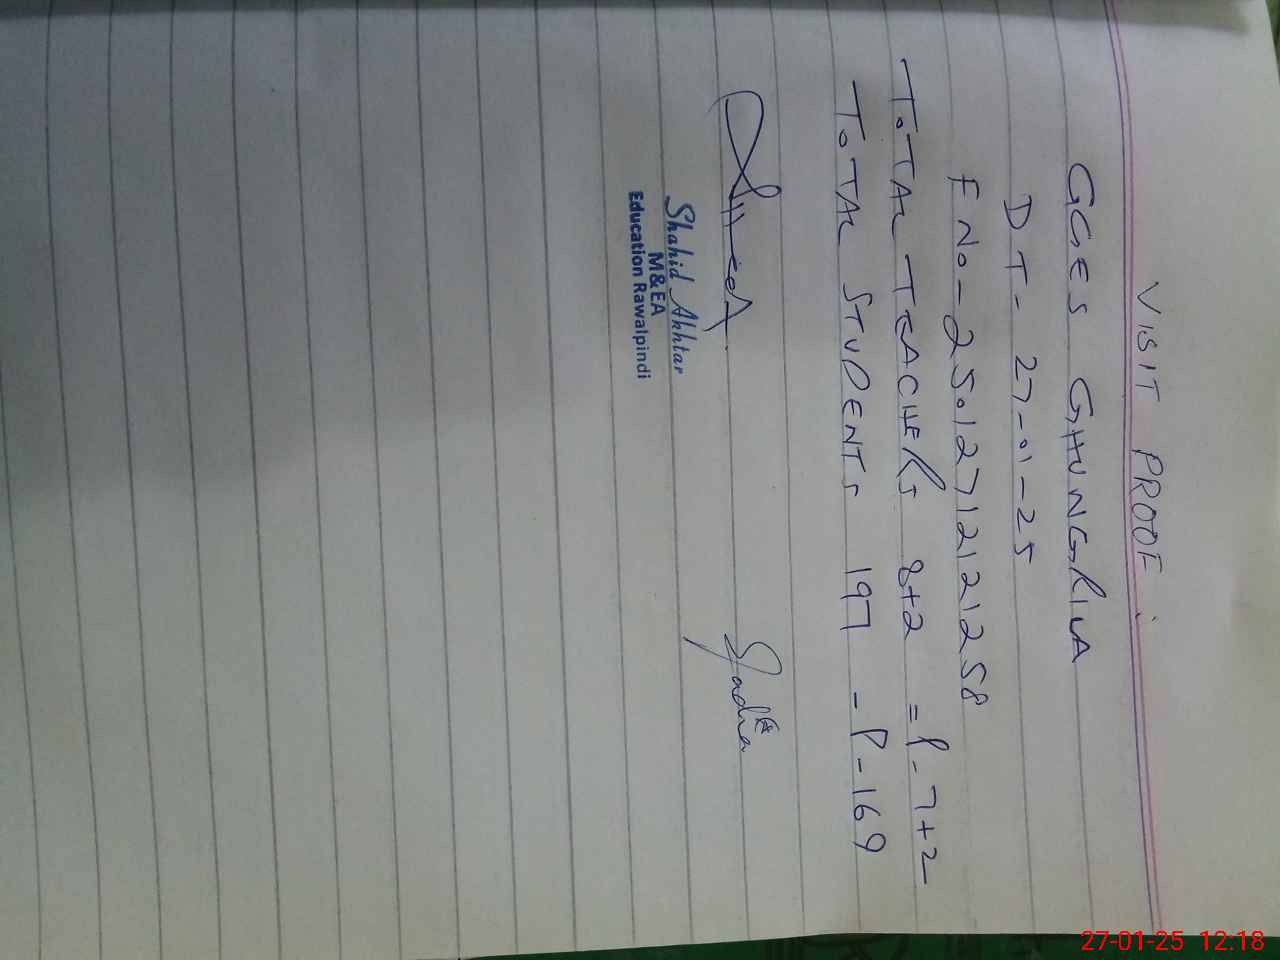 VISIT PROOF :
GGES GHUNGRILA
DT- 27-01-25
FNo- 25012712121258
TOTAL TEACHERS 8+2 = P-7+2
TOTAL STUDENTS 197 - P-169
Sadia
Shahid Akhtar
M&EA
Education Rawalpindi
27-01-25 12:18